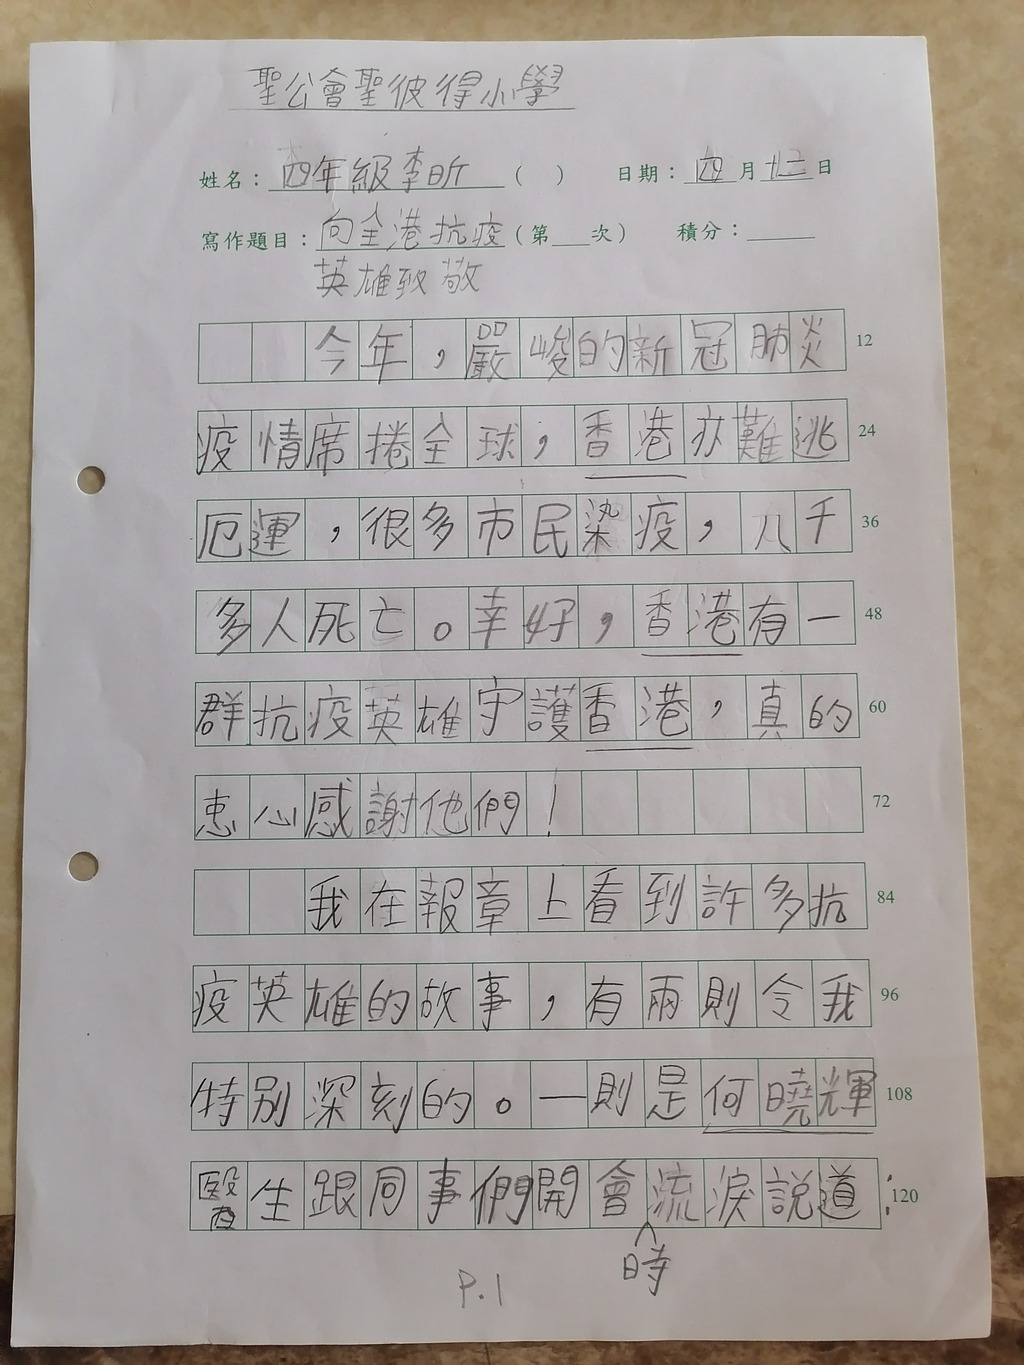 聖公會聖彼得小學
姓名：四年級李昕（ ） 日期：四月廿二日
寫作題目：向全港抗疫（第___次） 積分：
英雄致敬
今年，嚴峻的新冠肺炎 12
疫情席捲全球，香港亦難逃 24
厄運，很多市民染疫，八千 36
多人死亡。幸好，香港有一 48
群抗疫英雄守護香港，真的 60
衷心感謝他們！ 72
我在報章上看到許多抗 84
疫英雄的故事，有兩則令我 96
特別深刻的。一則是何曉輝 108
醫生跟同事們開會流淚説道： 120
時
P.1